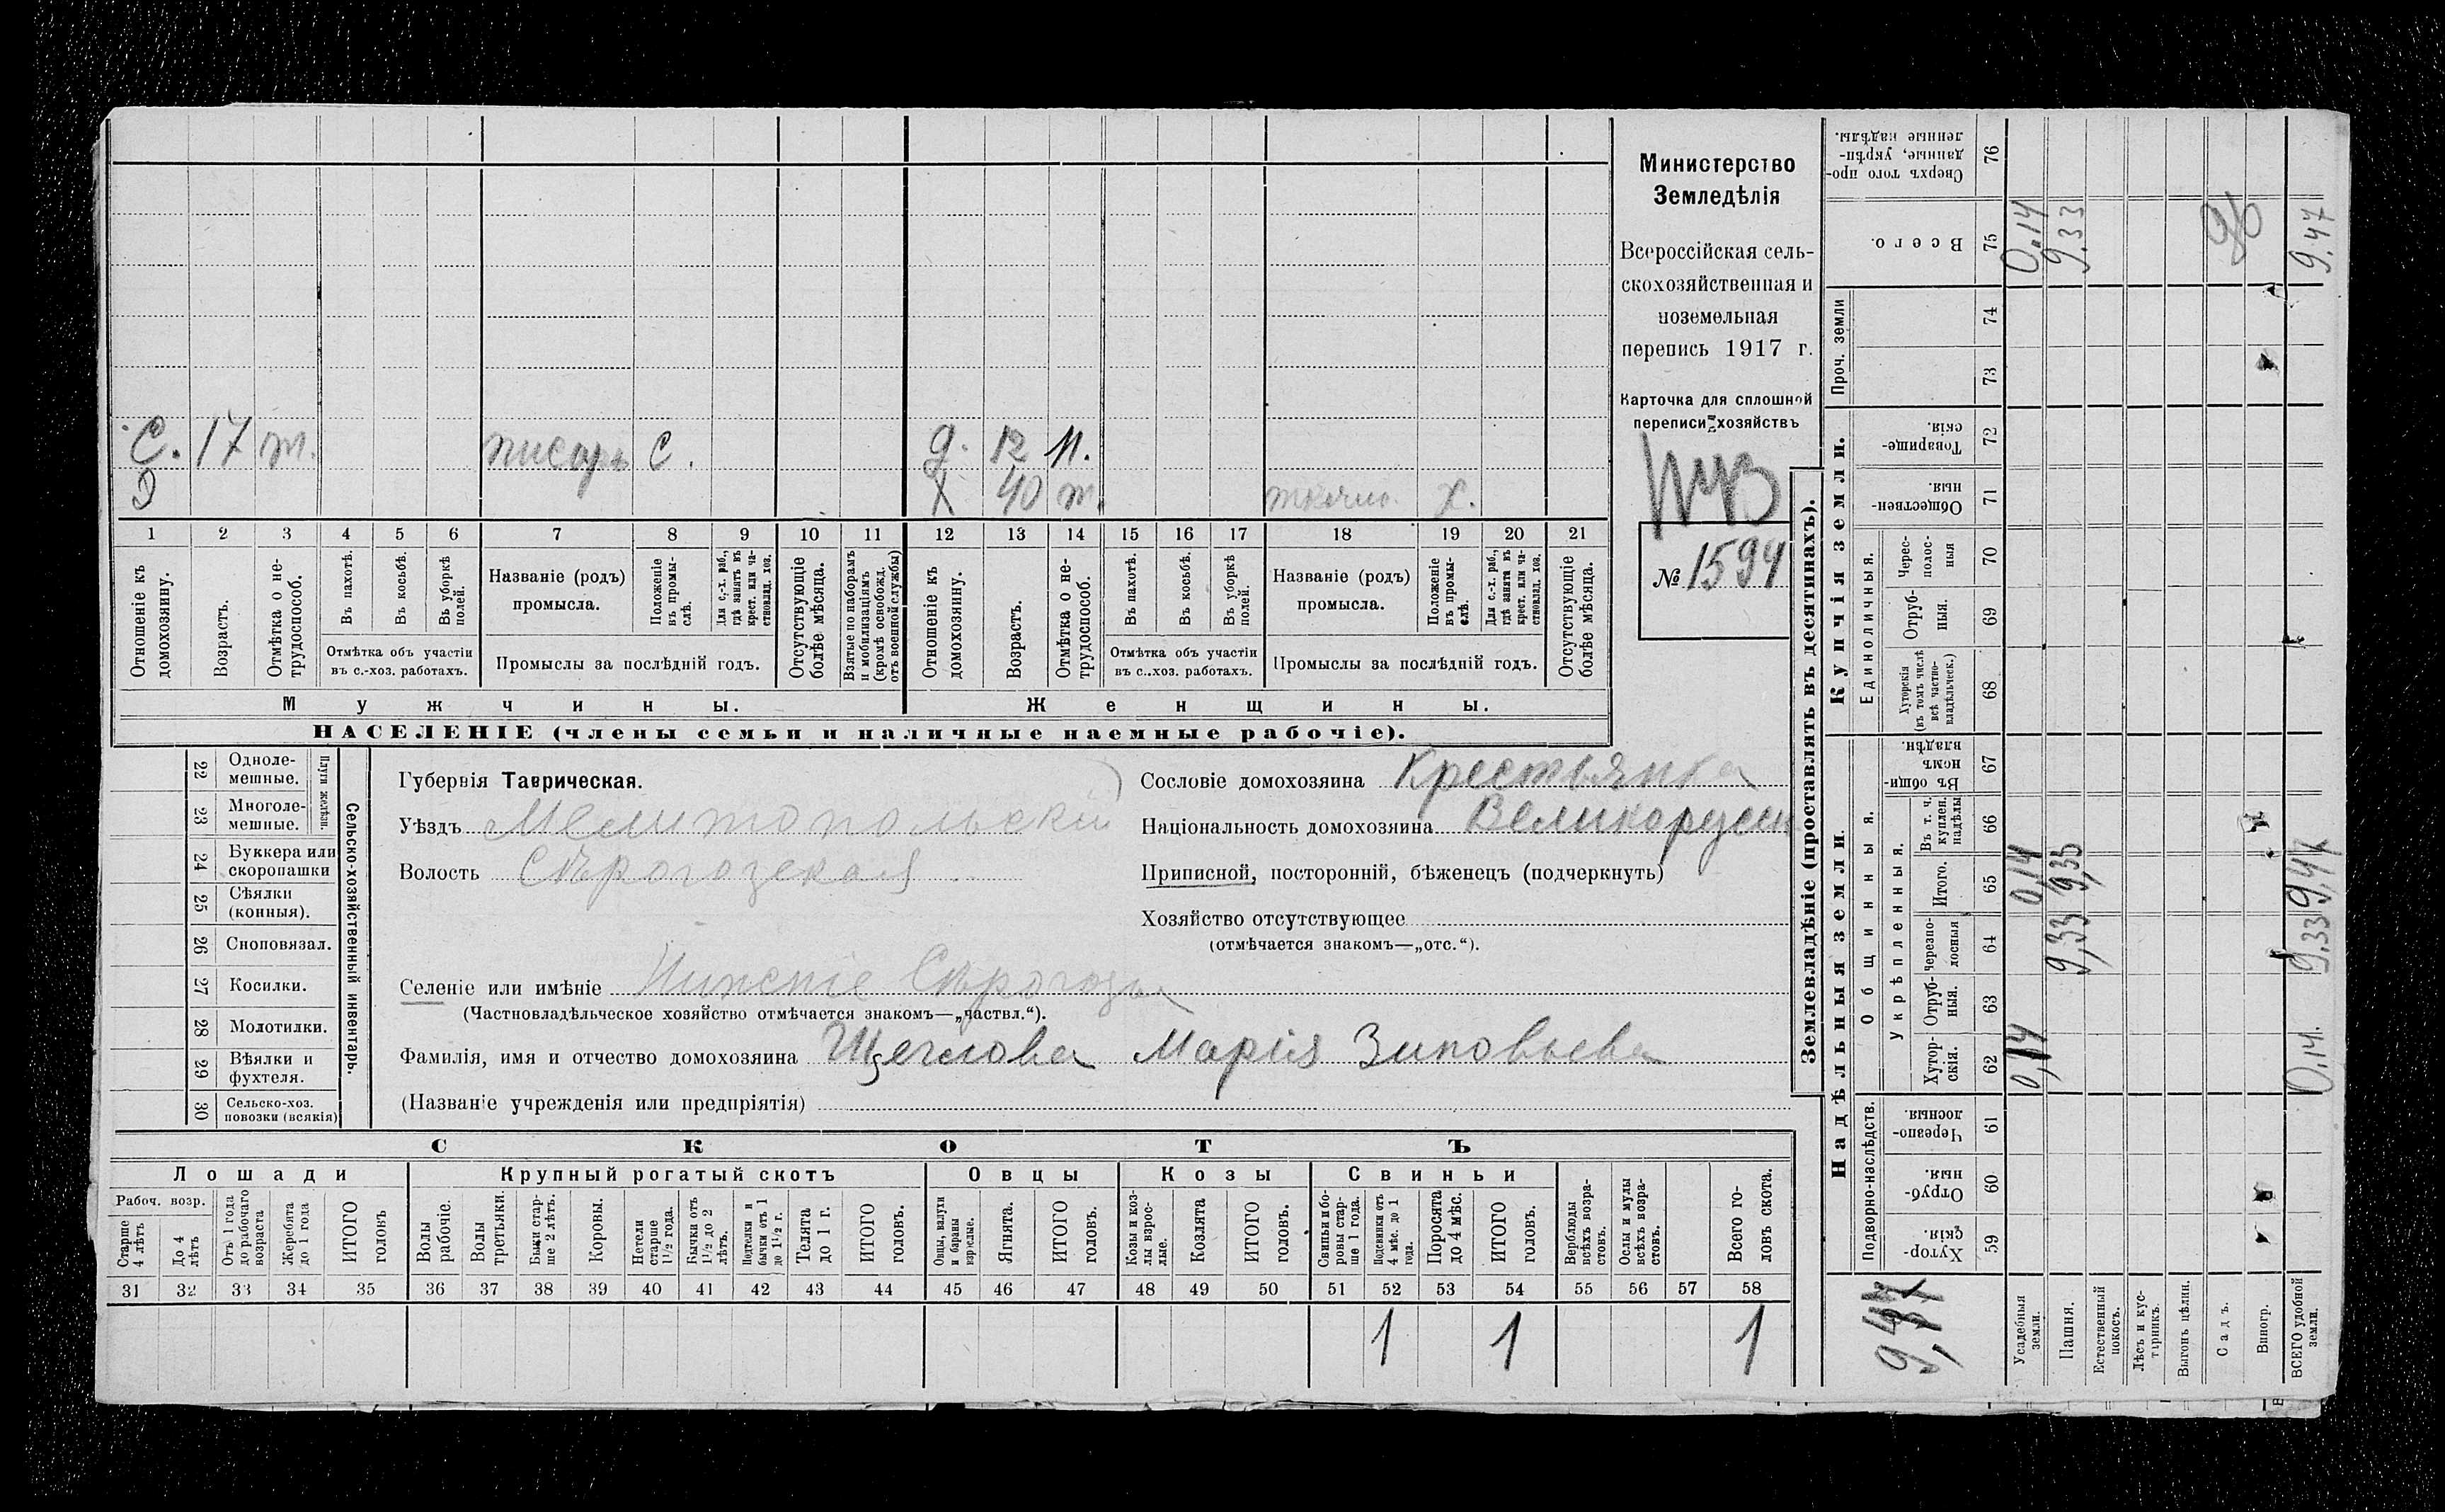 С. 17 т. писарь С. д. 12 н.
Э Х 40 т. Х.
1 2 3 4 5 6 7 8 9 10 11 12 13 14 15 16 17 18 19 20 21
Отношеніе къ домохозяину.
Возрастъ.
Отмѣтка о не-трудоспособ.
Въ пахотѣ.
Въ косьбѣ.
Въ уборкѣ полей.
Отмѣтка объ участіи въ с.-хоз. работахъ.
Названіе (родъ) промысла.
Положеніе въ промы-слѣ.
Для с.-х. раб., гдѣ занятъ въ крест. или ча-стновлад. хоз.
Промыслы за послѣдній годъ.
Отсутствующіе болѣе мѣсяца.
Взятые по наборамъ и мобилизаціямъ (кромѣ освобожд. отъ военной службы)
Отношеніе къ домохозяину.
Возрастъ.
Отмѣтка о не-трудоспособ.
Въ пахотѣ.
Въ косьбѣ.
Въ уборкѣ полей.
Отмѣтка объ участіи въ с.-хоз. работахъ.
Названіе (родъ) промысла.
Положеніе въ промы-слѣ.
Для с.-х. раб., гдѣ занята въ крест. или ча-стновлад. хоз.
Промыслы за послѣдній годъ.
Отсутствующіе болѣе мѣсяца.
Мужчины. Женщины.
НАСЕЛЕНІЕ (члены семьи и наличные наемные рабочіе).
Министерство
Земледѣлія
Всероссійская сель-
скохозяйственная и
поземельная
перепись 1917 г.
Карточка для сплошной
переписи хозяйствъ
№ 1594
22 Одноле-мешные.
23 Многоле-мешные.
Плуги желѣзн.
24 Буккера или скоропашки
25 Сѣялки (конныя).
26 Сноповязал.
27 Косилки.
28 Молотилки.
29 Вѣялки и фухтеля.
30 Сельско-хоз. повозки (всякія)
Сельско-хозяйственный инвентарь.
Губернія Таврическая.
Уѣздъ Мелитопольскій
Волость Сѣрогозская
Селеніе или имѣніе Нижніе Сѣрогозы
(Частновладѣльческое хозяйство отмѣчается знакомъ—„частвл.“).
Фамилія, имя и отчество домохозяина Щеглова Марія Зиновьева
(Названіе учрежденія или предпріятія)
Сословіе домохозяина Крестьянка
Національность домохозяина Великорусск
Приписной, посторонній, бѣженецъ (подчеркнуть)
Хозяйство отсутствующее
(отмѣчается знакомъ—„отс.“).
СКОТЪ
Лошади Крупный рогатый скотъ Овцы Козы Свиньи
Рабоч. возр.
Старше 4 лѣтъ
До 4 лѣтъ
Отъ 1 года до рабочаго возраста
Жеребята до 1 года
ИТОГО головъ
Волы рабочіе.
Волы третьяки.
Быки стар-ше 2 лѣтъ.
Коровы.
Нетели старше 1½ года.
Бычки отъ 1½ до 2 лѣтъ.
Подтелки и бычки отъ 1 до 1½ г.
Телята до 1 г.
ИТОГО головъ.
Овцы, валухи и бараны взрослые.
Ягнята.
ИТОГО головъ.
Козы и коз-лы взрос-лые.
Козлята
ИТОГО головъ.
Свиньи и бо-ровы стар-ше 1 года.
Подсвинки отъ 4 мѣс. до 1 года.
Поросята до 4 мѣс.
ИТОГО головъ.
Верблюды всѣхъ возра-стовъ.
Ослы и мулы всѣхъ возра-стовъ.
Всего го-ловъ скота.
31 32 33 34 35 36 37 38 39 40 41 42 43 44 45 46 47 48 49 50 51 52 53 54 55 56 57 58
1 1 1
Землевладѣніе (проставлять въ десятинахъ).
Надѣльныя земли. Купчія земли. Проч. земли
Подворно-наслѣдств.
Общинныя.
Укрѣпленныя.
Единоличныя.
Хутор-скія 59
Отруб-ныя. 60
Черезпо-лосныя. 61
Хутор-скія. 62
Отруб-ныя. 63
Черезпо-лосныя 64
Итого. 65
Въ т. ч. куплен. надѣлы 66
Въ общи-номъ владѣн. 67
Хуторскія (въ томъ числѣ всѣ частно-владѣльческ.) 68
Отруб-ныя. 69
Черес-полос-ныя 70
Обществен-ныя. 71
Товарище-скія. 72
73
74
Всего. 75
Сверхъ того про-данные, укрѣп-ленные надѣлы. 76
9,47
Усадебныя земли. 0,14 0,14 0.14
Пашня. 9,33 9,33 9.33
Естественный покосъ.
Лѣсъ и кус-тарникъ.
Выгонъ цѣлин.
Садъ. 96
Виногр.
ВСЕГО удобной земли. 0.14. 9.33 9,47 9.47